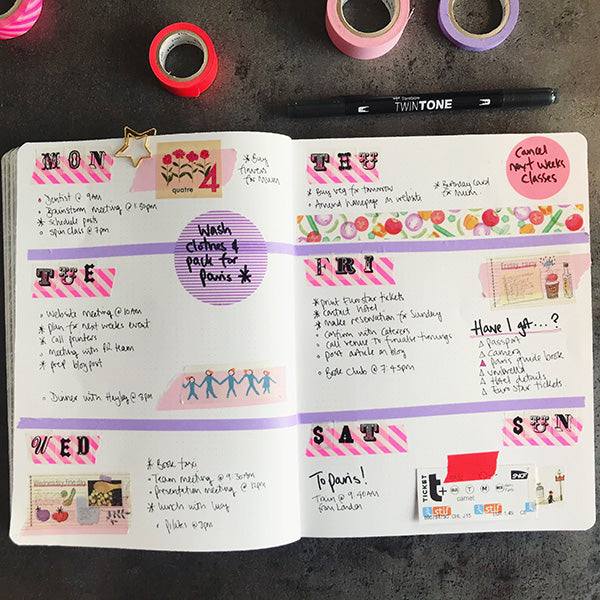 TWINTONE
MON
quatre
4
* Buy
flowers
for Mum
Dentist @ 9am
Brainstorm meeting @ 1:30pm
* Schedule posts
spin class @ 7pm
Wash
clothes &
pack for
Paris *
TUE
Website meeting @ 10am
* plan for next weeks event
* Call printers
meeting with PR team
* prep blog post
Dinner with Hayley @ 8pm
WED
Wednesday
* Book taxi
Team meeting @ 9:30am
Presentation meeting @ 12pm
* lunch with Lucy
Pilates @ 7pm
THU
* Buy veg for tomorrow
Amend homepage on website
* Birthday card
for Mum
Cancel
next weeks
classes
FRI
* print Eurostar tickets
* contact hotel
* make reservation for Sunday
Confirm with caterers
Call venue to finalise timings
post article on blog
Book Club @ 7:45pm
Have I got...?
passport
camera
paris guide book
umbrella
Hotel details
Eurostar tickets
SAT
SUN
To Paris!
Train @ 9:40am
from London
TICKET
t+
carnet
SNCF
stif